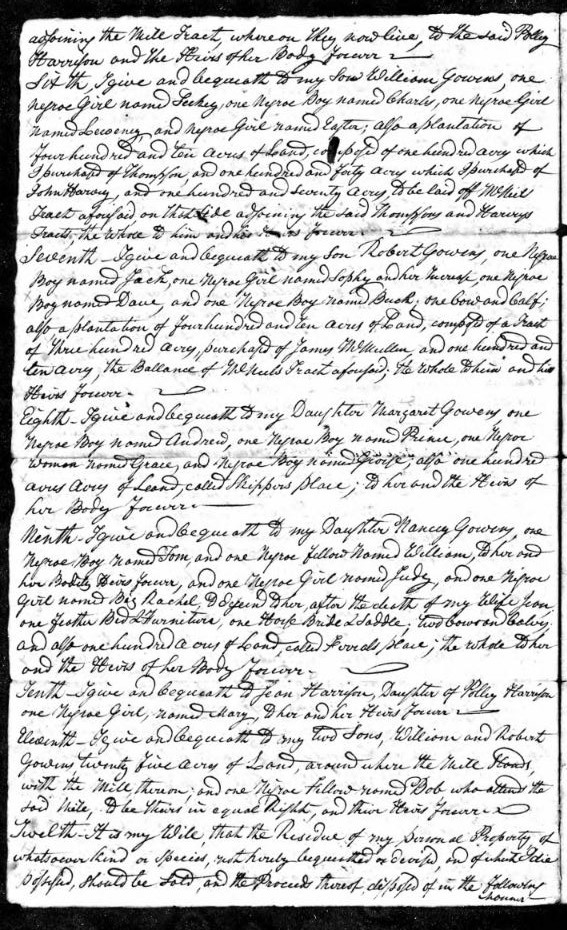 adjoining the Mile Tract, whereon they now live, to the said Polley
Harrison and the Heirs of her Body forever
Sixth, I give and bequeath to my Son William Gowens, one
negroe Girl named one Negroe Boy named Charles, one Negroe Girl
named and negroe Girl named Easter; also a plantation of
four hundred and ten acres of Land, composed of one hundred acres which
I purchased of Thompson and one hundred and forty acres which I purchased of
John Harvey, and one hundred and seventy acres, to be laid off McNeils
Tract aforesaid, on that side adjoining the said Thompsons and Harveys
Tracts; the whole to him and his Heirs forever
Seventh - I give and bequeath to my Son Robert Gowens, one Negroe
Boy named Jack, one Negroe Girl named Sophy and her Increase, one Negroe
Boy named Dave, and one Negroe Boy named Buck, one Cow and Calf;
also a plantation of four hundred and ten acres of Land, composed of a Tract
of three hundred acres, purchased of James McMullen, and one hundred and
ten acres, the Ballance of McNeils Tract aforesaid; the whole to him and his
Heirs forever -
Eighth - I give and bequeath to my Daughter Margaret Gowens one
Negroe Boy named Andrew, one Negroe Boy named Prince, one Negroe
woman named Grace, and Negroe Boy named also one hundred
acres Acres of Land, called Skippers place; to her and the Heirs of
her Body forever
Ninth - I give and bequeath to my Daughter Nancey Gowens, one
Negroe Boy named Tom, and one Negroe fellow Named William, to her and
her Bodily Heirs forever, and one Negroe Girl named Judy, and one Negroe
Girl named Big Rachel, to her, after the death of my Wife Jean,
one feather Bed & Furniture, one Horse Bridle & Saddle; two Cows and Calves;
and also one hundred acres of Land, called place; the whole to her
and the Heirs of her Body forever -
Tenth - I give and bequeath to Jean Harrison, Daughter of Polley Harrison
one Negroe Girl, named Mary, to her and her Heirs forever
Eleventh - I give and bequeath to my two Sons, William and Robert
Gowens twenty five acres of Land, around where the Mill Stands,
with the Mill thereon; and one Negroe Fellow named Bob who attends the
said Mill, to be theirs in equal Right, and their Heirs forever
Twelth - It is my Will, that the Residue of my personal Property, of
whatsoever kind or species, not hereby bequeathed or devised, and of which I die
possessed, should be Sold, and the Proceeds thereof disposed of in the following
Manner